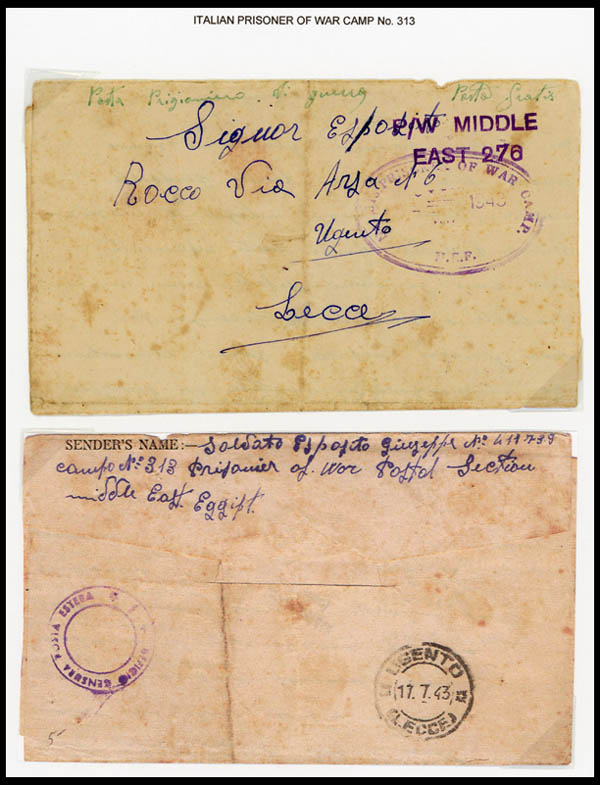 ITALIAN PRISONER OF WAR CAMP No. 313
Posta Prigioniero di guerra Posta Gratis
Signor Esposito
P/W MIDDLE
EAST 276
Rocco Via Arza N° 6
OF WAR CAMP.
1943
Ugento
Lecce
SENDER'S NAME:— Soldato Esposito Giuseppe N°
campo N° 313 Prisonier of War Postal Section
middle East Eggipt.
UFFICIO CENSURA POSTA ESTERA
UGENTO
17.7.43
(LECCE)
5